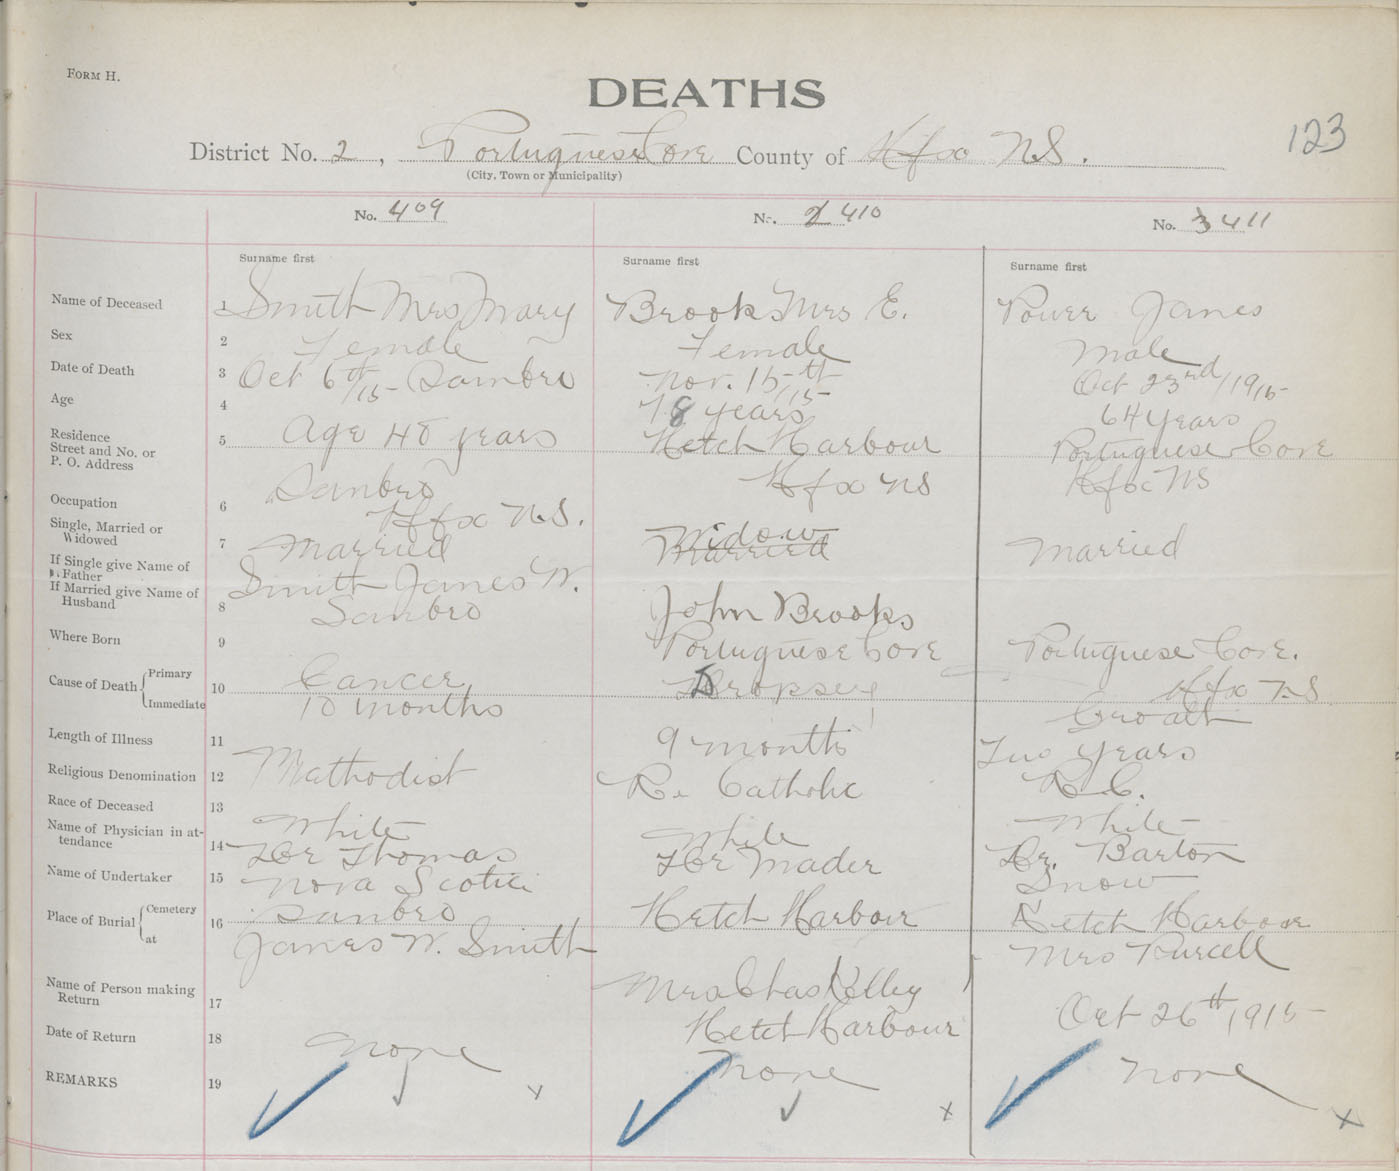 FORM H.
DEATHS
123
District No. 2, Portuguese Cove County of Hfx N.S.
(City, Town or Municipality)
No. 409
No. 2 410
No. 3 411
Surname first
Surname first
Surname first
Name of Deceased
1
Smith Mrs Mary
Brooks Mrs E.
Power James
Sex
2
Female
Female
Male
Date of Death
3
Oct 6th/15 Sambro
Nov. 15th/15
Oct 23rd/1915
Age
4
78 years
64 years
Residence
Street and No. or
P. O. Address
5
Age 48 years
Ketch Harbour
Hfx NS
Portuguese Cove
Hfx NS
Occupation
6
Sambro
Hfx N.S.
Single, Married or
Widowed
7
Married
Widow
Married
Married
If Single give Name of
Father
If Married give Name of
Husband
8
Smith James W.
Sambro
John Brooks
Where Born
9
Portuguese Cove
Portuguese Cove.
Hfx NS
Cause of Death
Primary
Immediate
10
Cancer
10 months
Dropsey
Length of Illness
11
9 months
Two years
Religious Denomination
12
Mathodist
R. Catholic
R. C.
Race of Deceased
13
White
White
White
Name of Physician in at-
tendance
14
Dr Thomas
Dr Mader
Dr. Barton
Name of Undertaker
15
Nova Scotia
Snow
Place of Burial
Cemetery
at
16
Sambro
James W. Smith
Ketch Harbour
Ketch Harbour
Mrs Purcell
Name of Person making
Return
17
Mrs Chas Kelley
Ketch Harbour
Oct 26th, 1915
Date of Return
18
REMARKS
19
none
none
none
x
x
x